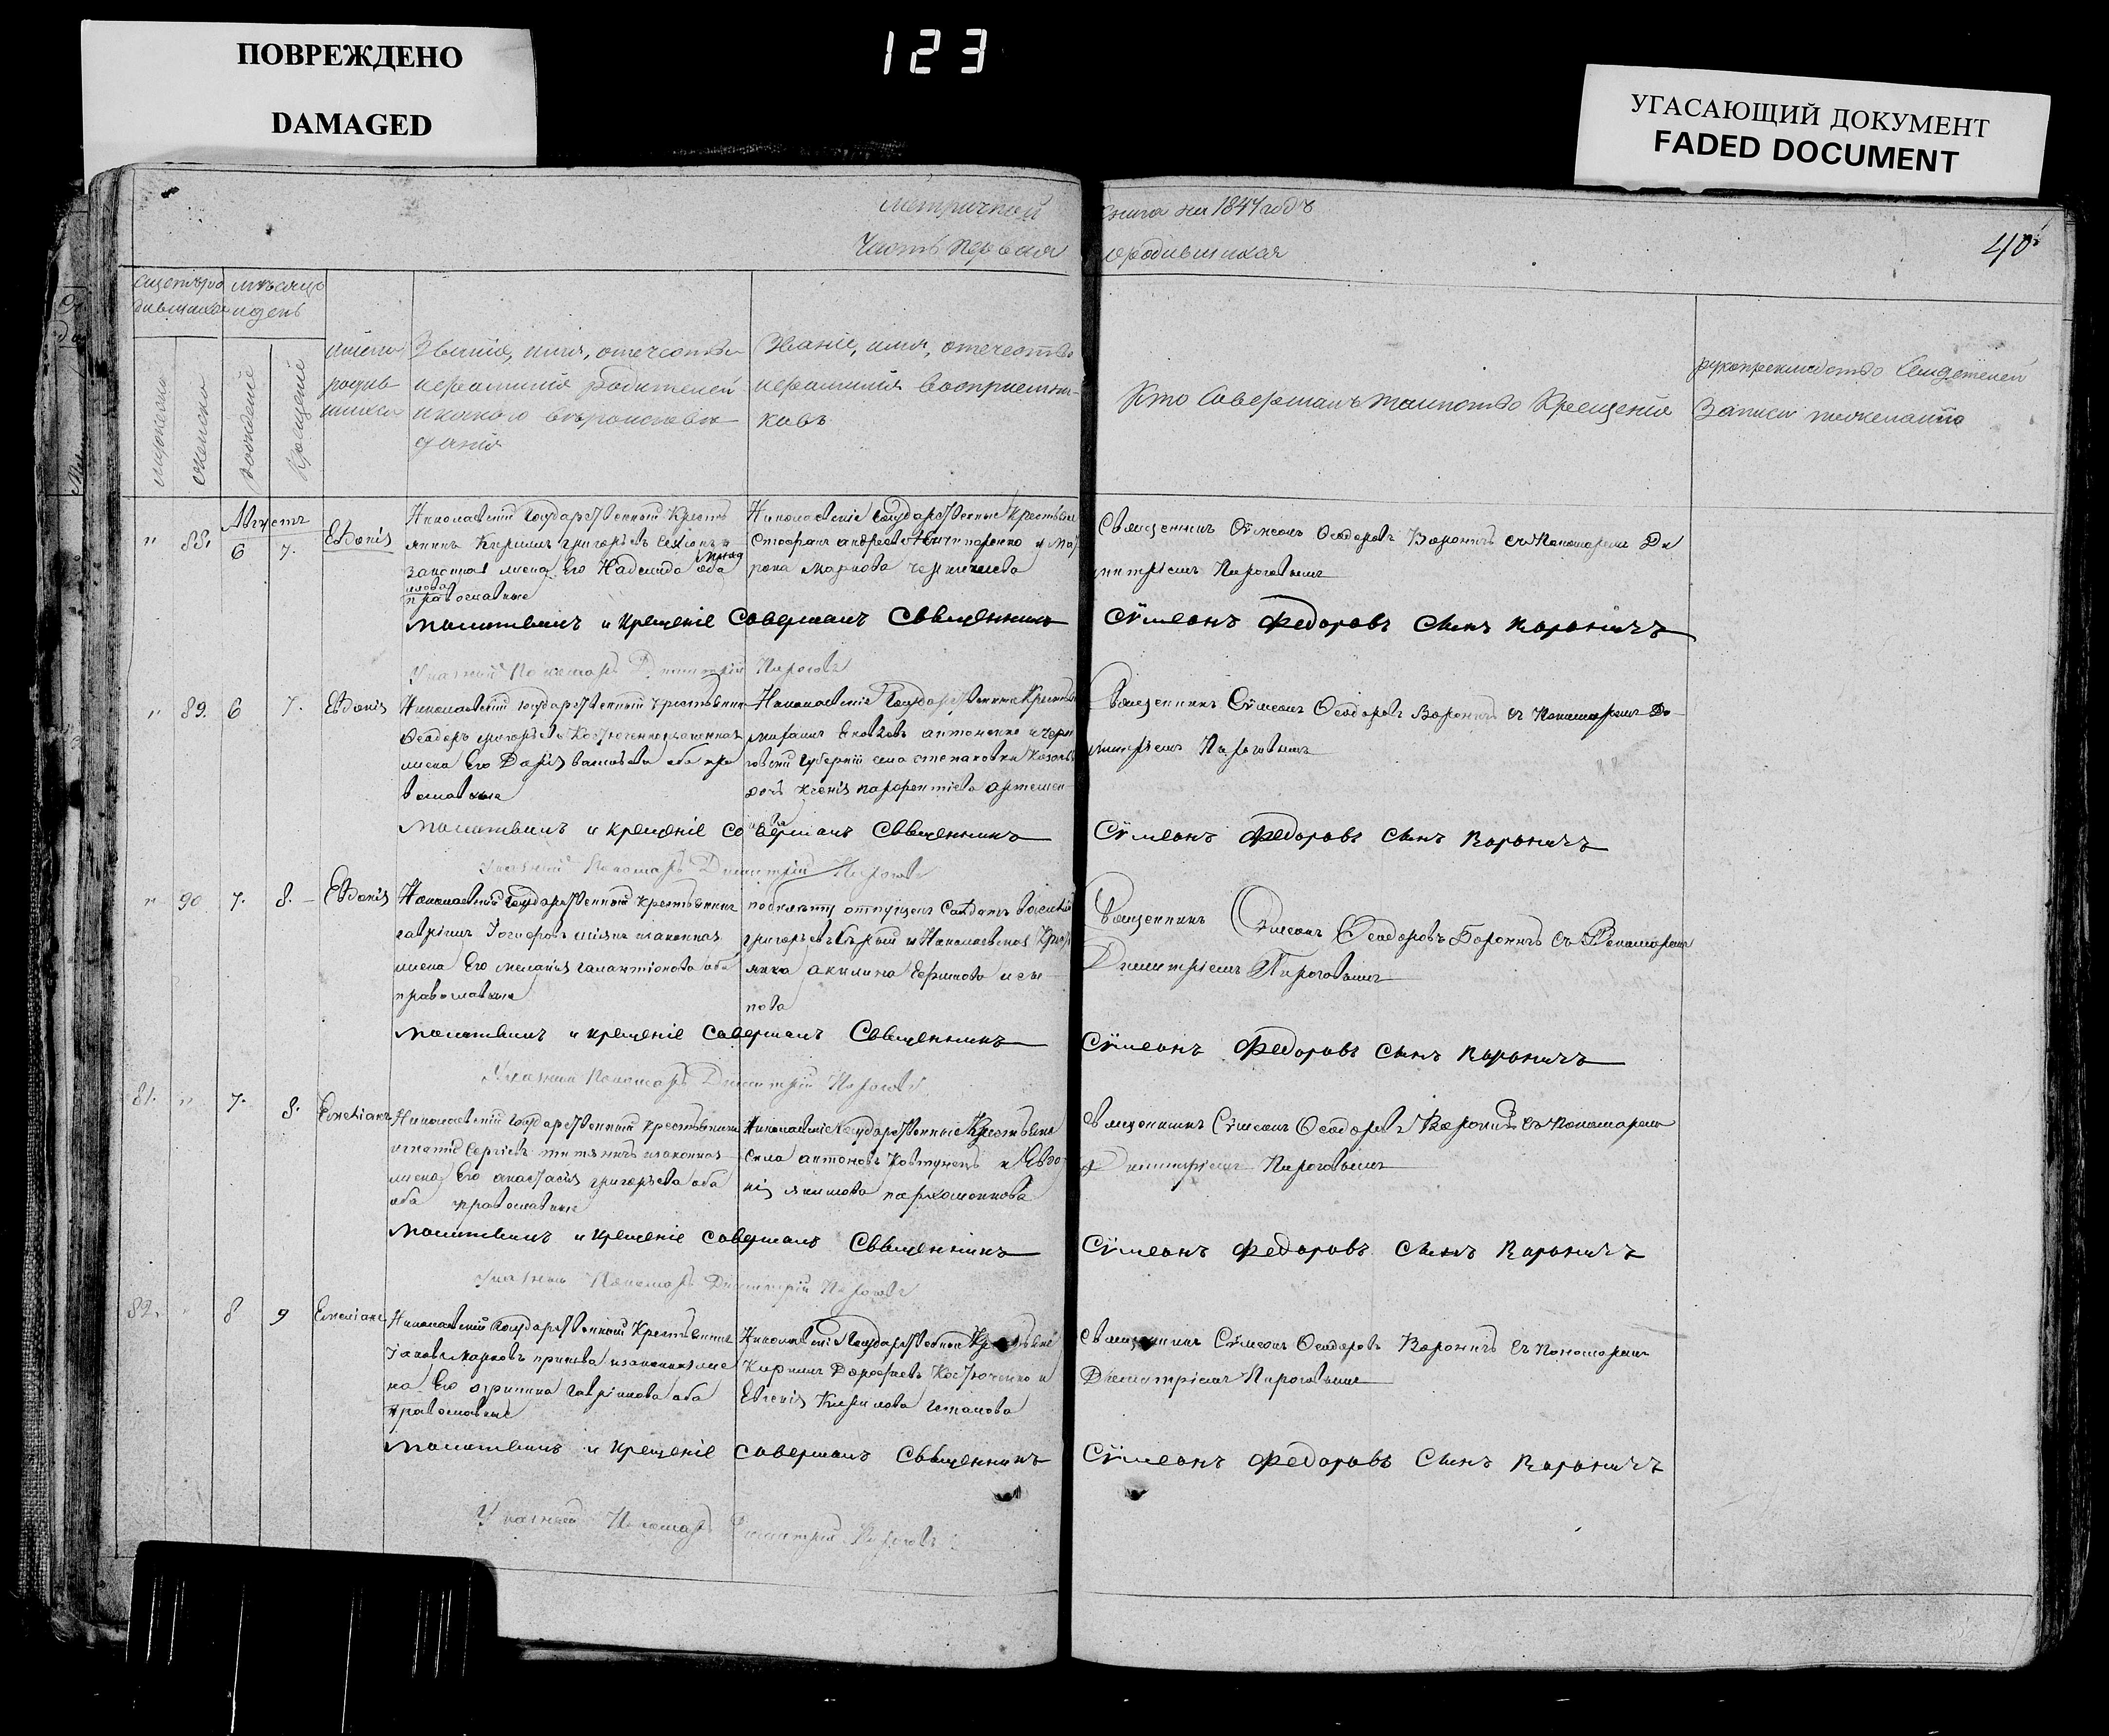 ПОВРЕЖДЕНО
DAMAGED
123
УГАСАЮЩИЙ ДОКУМЕНТ
FADED DOCUMENT
Метричной книга на 1844 годъ
Часть первая о родившихся
40
Счетъ ро
дившихся
мѣсяцъ
и день
мужеска
женска
рождение
крещение
имена
родив
шихся
Звание, имя, отечество
и фамилия родителей
и какого вѣроисповѣ
дания
Звание, имя, отечество
и фамилия восприемни-
ковъ
Кто совершалъ таинство крещения
рукоприкладство свидетелей
записи по желанию
Августъ
" 88. 6 7. Евдокія
Николаевский государственный кресть
янинъ Кирилъ Григорьевъ и
законная жена его Надежда оба
православные
Николаевские государственные крестьяне
Стефанъ Андреевъ и Ма
Маркова
Священникъ Сѵмеонъ Ѳеодоровъ Вороничъ съ Пономаремъ Ди
митріемъ Пироговымъ
молитвилъ и крещеніе совершалъ Священникъ Сѵмеонъ Федоровъ сынъ Вороничъ
Указный Пономарь Димитрій Пироговъ
" 89. 6 7. Евдокія
Николаевский государственный крестьянинъ
Ѳеодоръ Григорьевъ Костюченко и законная
жена его Дарія оба пра
вославные
Николаевские государственные крестьяне
антоненко и черни
говской губерніи села степановки
дочь
Священникъ Сѵмеонъ Ѳеодоровъ Вороничъ съ Пономаремъ Ди
митріемъ Пироговымъ
молитвилъ и крещеніе совершалъ Священникъ Сѵмеонъ Федоровъ сынъ Вороничъ
Указный Пономарь Димитрій Пироговъ
" 90 7. 8. Евдокія
Николаевский государственный крестьянинъ
гавріилъ и законная
жена его меланія оба
православные
отпущенъ Солдатъ василій
григорьевъ и Николаевская
янка акилина Ефимова
нова
Священникъ Сѵмеонъ Ѳеодоровъ Вороничъ съ Пономаремъ
Димитріемъ Пироговымъ
молитвилъ и крещеніе совершалъ Священникъ Сѵмеонъ Федоровъ сынъ Вороничъ
Указный Пономарь Димитрій Пироговъ
81. " 7. 8. Емеліанъ
Николаевский государственный крестьянинъ
игнатій Сергіевъ и законная
жена его анастасія григорьева оба
оба православные
Николаевские государственные крестьяне
Сила антоновъ Ковтунецъ и Евдо
кія якимова пархоменкова
Священникъ Сѵмеонъ Ѳеодоровъ Вороничъ съ Пономаремъ
Димитріемъ Пироговымъ
молитвилъ и крещеніе совершалъ Священникъ Сѵмеонъ Федоровъ сынъ Вороничъ
Указный Пономарь Димитрій Пироговъ
82. 8 9 Емеліанъ
Николаевский государственный крестьянинъ
Іаковъ Марковъ и законная же
на его гавріилова оба
православные
Николаевские государственные крестьяне
Кирилъ Дорофеевъ Костюченко и
Евгенія Кирилова
Священникъ Сѵмеонъ Ѳеодоровъ Вороничъ съ Пономаремъ
Димитріемъ Пироговымъ
молитвилъ и крещеніе совершалъ Священникъ Сѵмеонъ Федоровъ сынъ Вороничъ
Указный Пономарь Димитрій Пироговъ